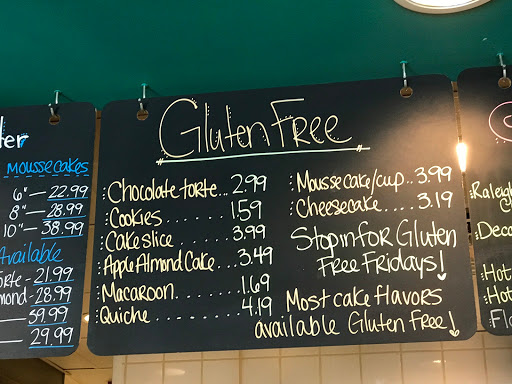 ter
mousse cakes
6" — 22.99
8" — 28.99
10" — 38.99
Available
orte - 21.99
mond - 28.99
— 39.99
— 29.99
Gluten Free
Chocolate torte... 2.99
Cookies....... 1.59
Cake slice...... 3.99
Apple Almond Cake... 3.49
Macaroon....... 1.69
Quiche......... 4.19
Mousse cake/cup.. 3.99
Cheesecake.... 3.19
Stop in for Gluten
Free Fridays!
Most cake flavors
available Gluten Free!
Raleig
Deco
Hot
Hot
Fl